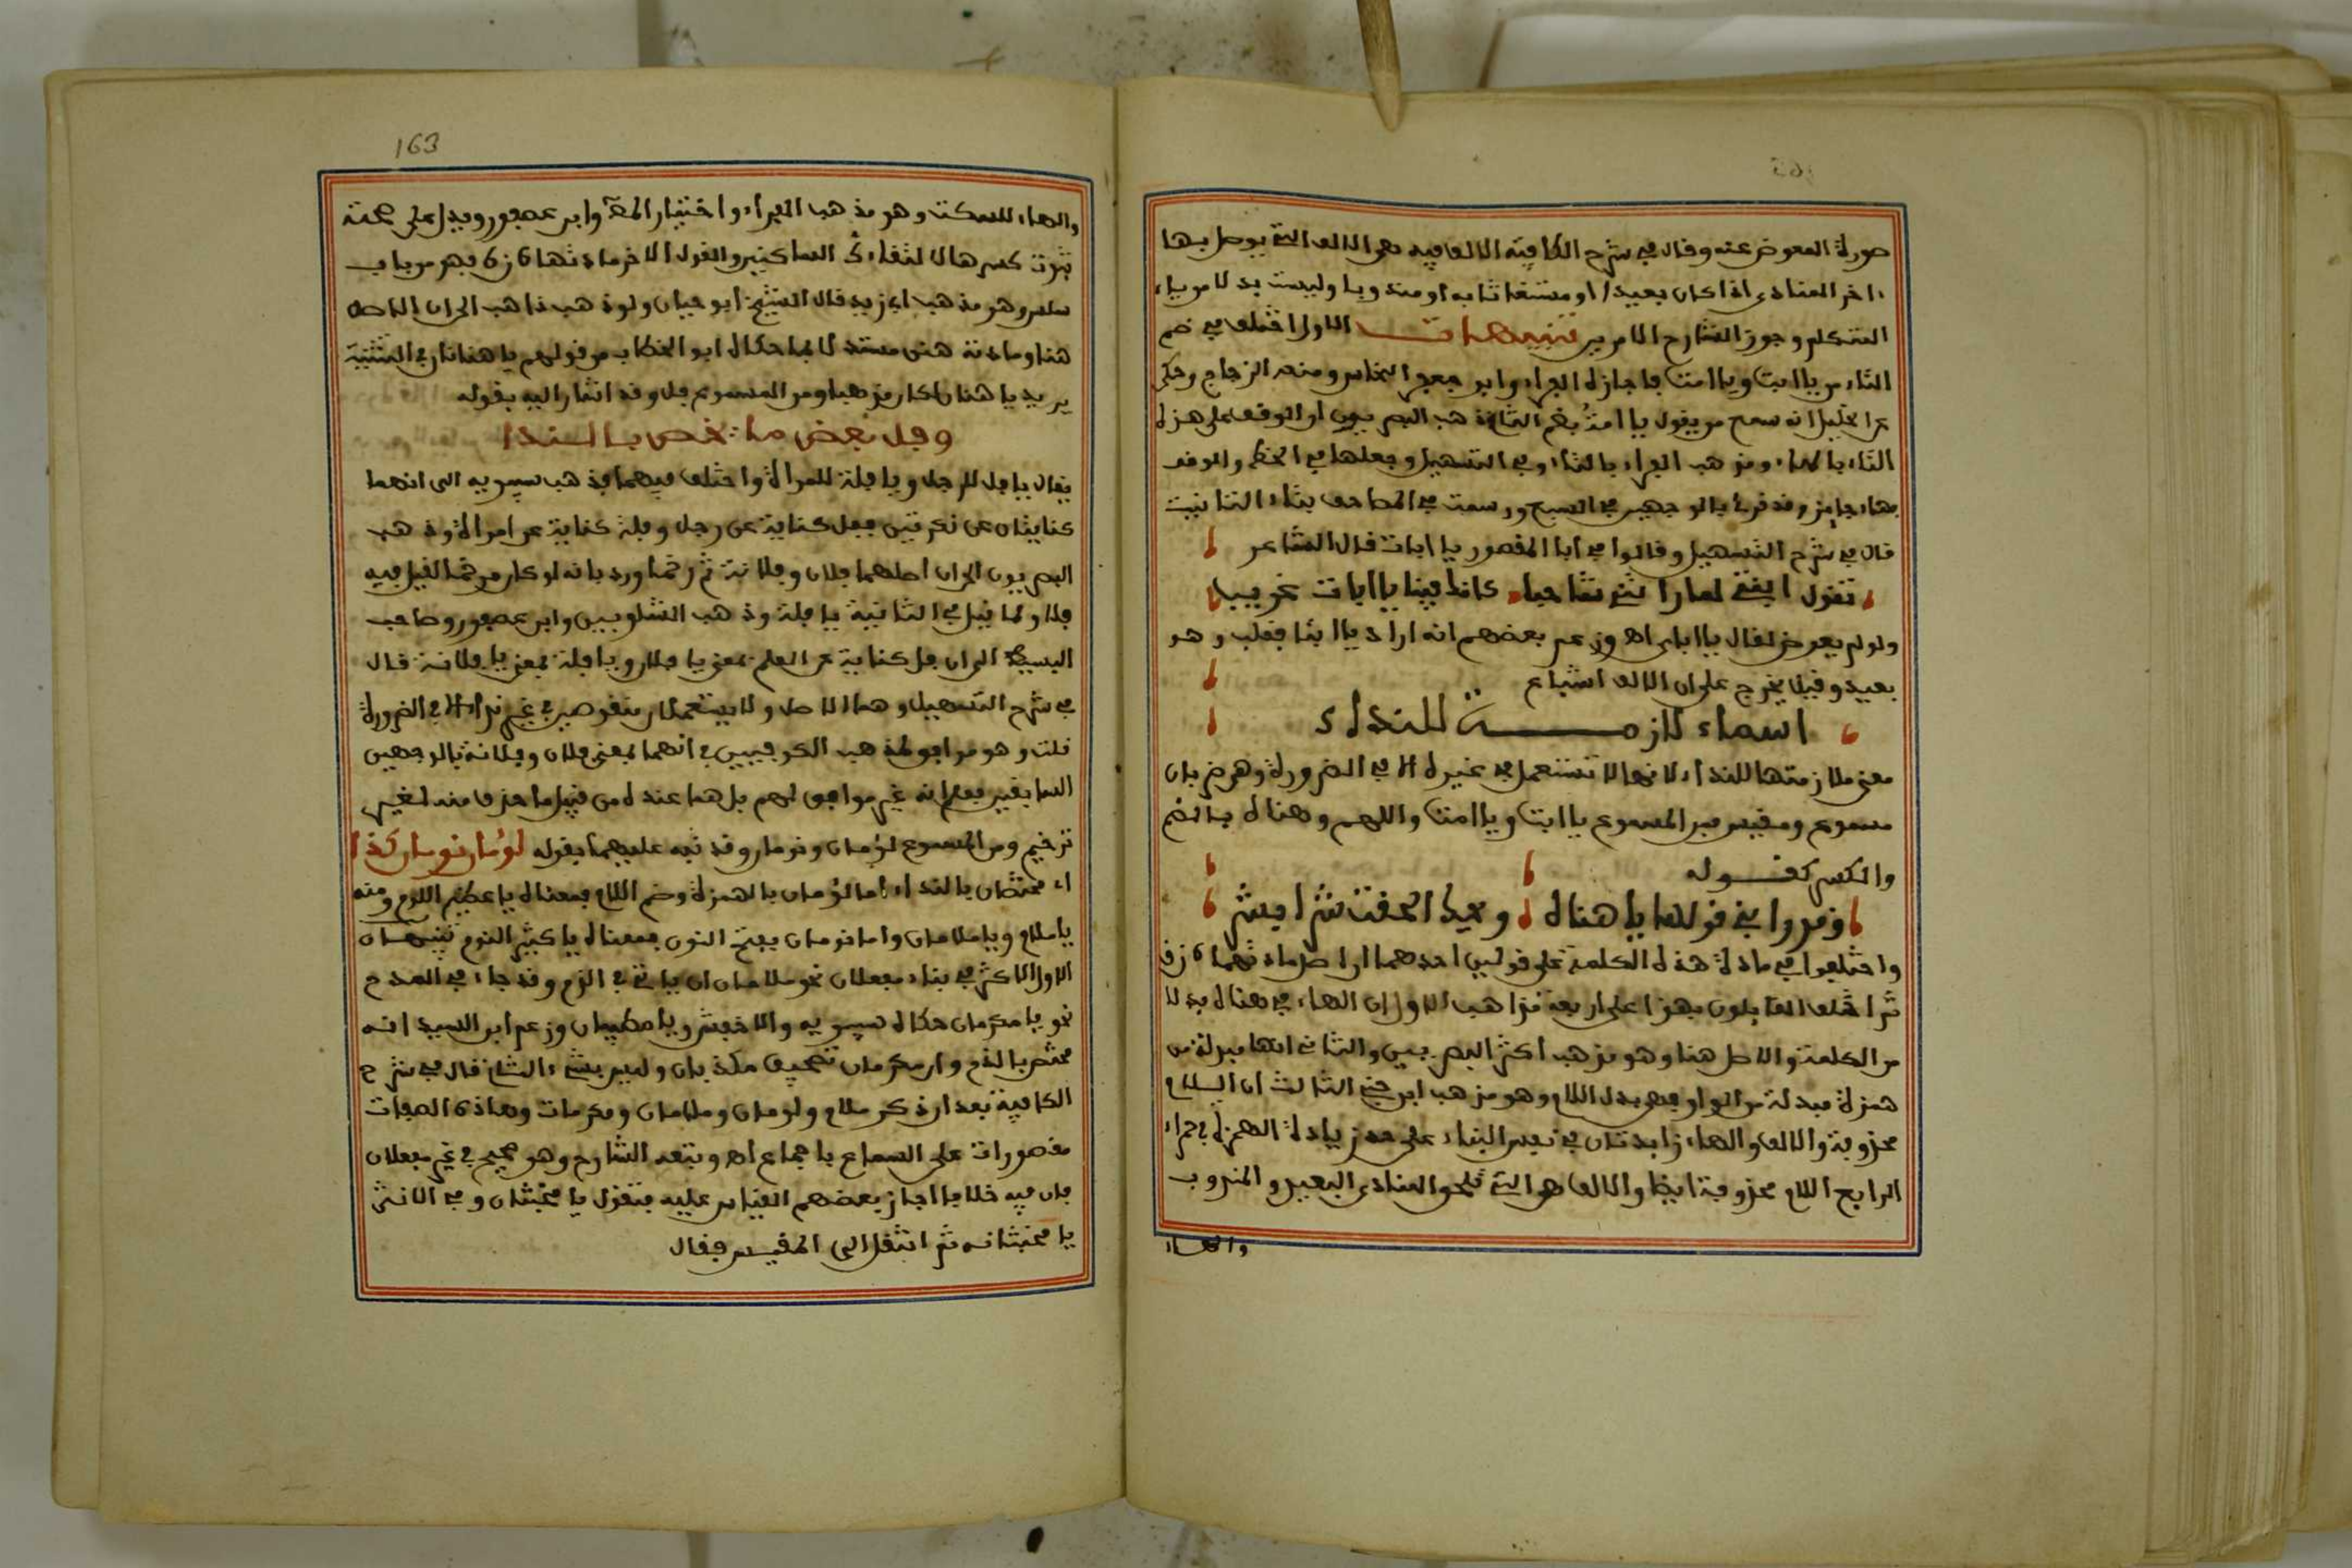 صورة المعوض عنه وقال في شرح الكافية الالف فيه هي الالف التي يوصل بها
ءاخر المنادى اذا كان بعيدا او مستغاثا به او مندوبا وليست بدلا من ياء
المتكلم وجوز الشارح الامرين تنبيهات الاول اختلف في ضم
التاء من يا ابت ويا امت فاجازه الفراء وابو جعفر النحاس ومنعه الزجاج وحكى
عن الخليل انه سمع من يقول يا امتُ بضم التاء ذهب البصريون الى الوقف على هذه
التاء بالهاء ومذهب الفراء بالتاء وفي التسهيل وجعلها في الخط والوقف
هاء جايز وقد قرئ بالوجهين في السبع ورسمت في المصاحف بتاء التانيث
قال في شرح التسهيل وقالوا في ابا المقصور يا ابات قال الشاعر
تقول ابنتي لما راتني شاحبا كانك فينا يا ابات غريب
ولو لم يعوض لقال يا اباي اه وزعم بعضهم انه اراد يا ابتا فقلب وهو
بعيد وقيل يخرج على ان الالف اشباع
اسماء لازمة للنداء
معنى ملازمتها للنداء انها لا تستعمل في غيره الا في الضرورة وهي ضربان
مسموع ومقيس فمن المسموع يا ابت ويا امت واللهم وهناه بالضم
والكسر كقوله
وقد رابني قولها يا هناه ويحك الحقت شرا بشر
واختلفوا في مادة هذه الكلمة على قولين احدهما ان اصل مادتها ه ن و
ثم اختلف القايلون بهذا على اربعة مذاهب الاول ان الهاء في هناه بدلا
من الكلمة والاصل هنا وهو مذهب اكثر البصريين والثاني انها مبدلة من
همزة مبدلة من الواو فهي بدل اللام وهو مذهب ابن جني الثالث ان اللام
محذوفة والالف والهاء زايدتان في نفس البناء على حد زيادة الهمزة في حمراء
الرابع اللام محذوفة ايضا والالف هي التي تلحق المنادى البعيد والمندوب
والهاء
163
والهاء للسكت وهو مذهب الفراء واختيار المص وابن عصفور ويدل على صحته
ثبوت كسرها لالتقاء الساكنين والقول الاخر مادتها ه ن ه فهو من باب
سلس وهو مذهب ابي زيد قال الشيخ ابو حيان ولو ذهب ذاهب الى ان الاصل
هنا ومادته هنن مستدلا بما حكاه ابو الخطاب من قولهم يا هنانان في التثنية
يريد يا هنان لكان مذهبا ومن المسموع فل وقد اشار اليه بقوله
وفل بعض ما يخص بالندا
يقال يا فل للرجل ويا فلة للمراة واختلف فيهما فذهب سيبويه الى انهما
كنايتان عن نكرتين ففل كناية عن رجل وفلة كناية عن امراة وذهب
الكوفيون الى ان اصلهما فلان وفلانة ثم رخما ورد بانه لو كان مرخما لقيل فيه
فلا ولما قيل في التانيث يا فلة وذهب الشلوبين وابن عصفور وصاحب
البسيط الى ان فل كناية عن العلم بمعنى يا فلان ويا فلة بمعنى يا فلانة قال
في شرح التسهيل وهما الاصل ولا يستعملان منقوصين في غير نداء الا في الضرورة
قلت وهو موافق لمذهب الكوفيين في انهما بمعنى فلان وفلانة بالوجهين
السابقين فعلم انه غير موافق لهم بل هما عنده من قبيل ما حذف منه لغير
ترخيم ومن المسموع لؤمان ونومان وقد نبه عليهما بقوله لؤمان نومان كذا
اي مختصان بالنداء اما لؤمان بالهمزة وضم اللام فمعناه يا عظيم اللوم ومنه
يا ملأم ويا ملأمان واما نومان بفتح النون فمعناه يا كثير النوم تنبيهان
الاول الاكثر في بناء مفعلان نحو ملأمان ان ياتي في الذم وقد جاء في المدح
نحو يا مكرمان حكاه سيبويه والاخفش ويا مطيبان وزعم ابن السيد انه
مختص بالذم وان مكرمان تصحيف مكذبان وليس بشيء الثاني قال في شرح
الكافية بعد ان ذكر ملأم ولومان وملأمان ومكرمان وهذه الصفات
مقصورات على السماع باجماع اه وتبعه الشارح وهو صحيح في غير مفعلان
فان فيه خلافا اجاز بعضهم القياس عليه فتقول يا مخبثان وفي الانثى
يا مخبثانه ثم انتقل الى المقيس فقال